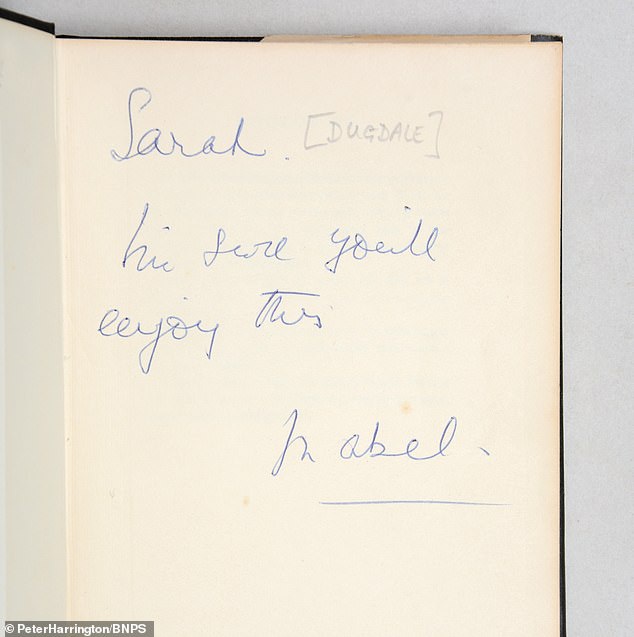 Sarah. [DUGDALE]
I'm sure you'll
enjoy this
Mabel.
© PeterHarrington/BNPS